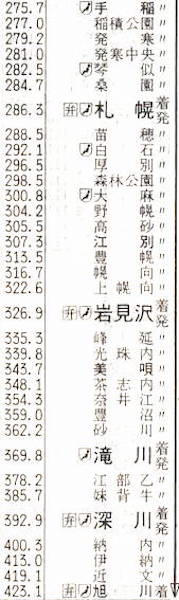 275.7 手稲 〃
277.0 稲積公園 〃
279.2 発寒 〃
281.0 発寒中央 〃
282.5 琴似 〃
284.7 桑園 〃
286.3 弁 札幌 着発
288.5 苗穂 〃
292.1 白石 〃
296.5 厚別 〃
298.5 森林公園 〃
300.8 大麻 〃
304.2 野幌 〃
305.5 高砂 〃
307.3 江別 〃
313.5 豊幌 〃
316.7 幌向 〃
322.6 上幌向 〃
326.9 弁 岩見沢 着発
335.3 峰延 〃
339.8 光珠内 〃
343.7 美唄 〃
348.1 茶志内 〃
354.3 奈井江 〃
359.0 豊沼 〃
362.2 砂川 〃
369.8 滝川 着発
378.2 江部乙 〃
385.7 妹背牛 〃
392.9 弁 深川 着発
400.3 納内 〃
413.0 伊納 〃
419.1 近文 〃
423.1 弁 旭川 着